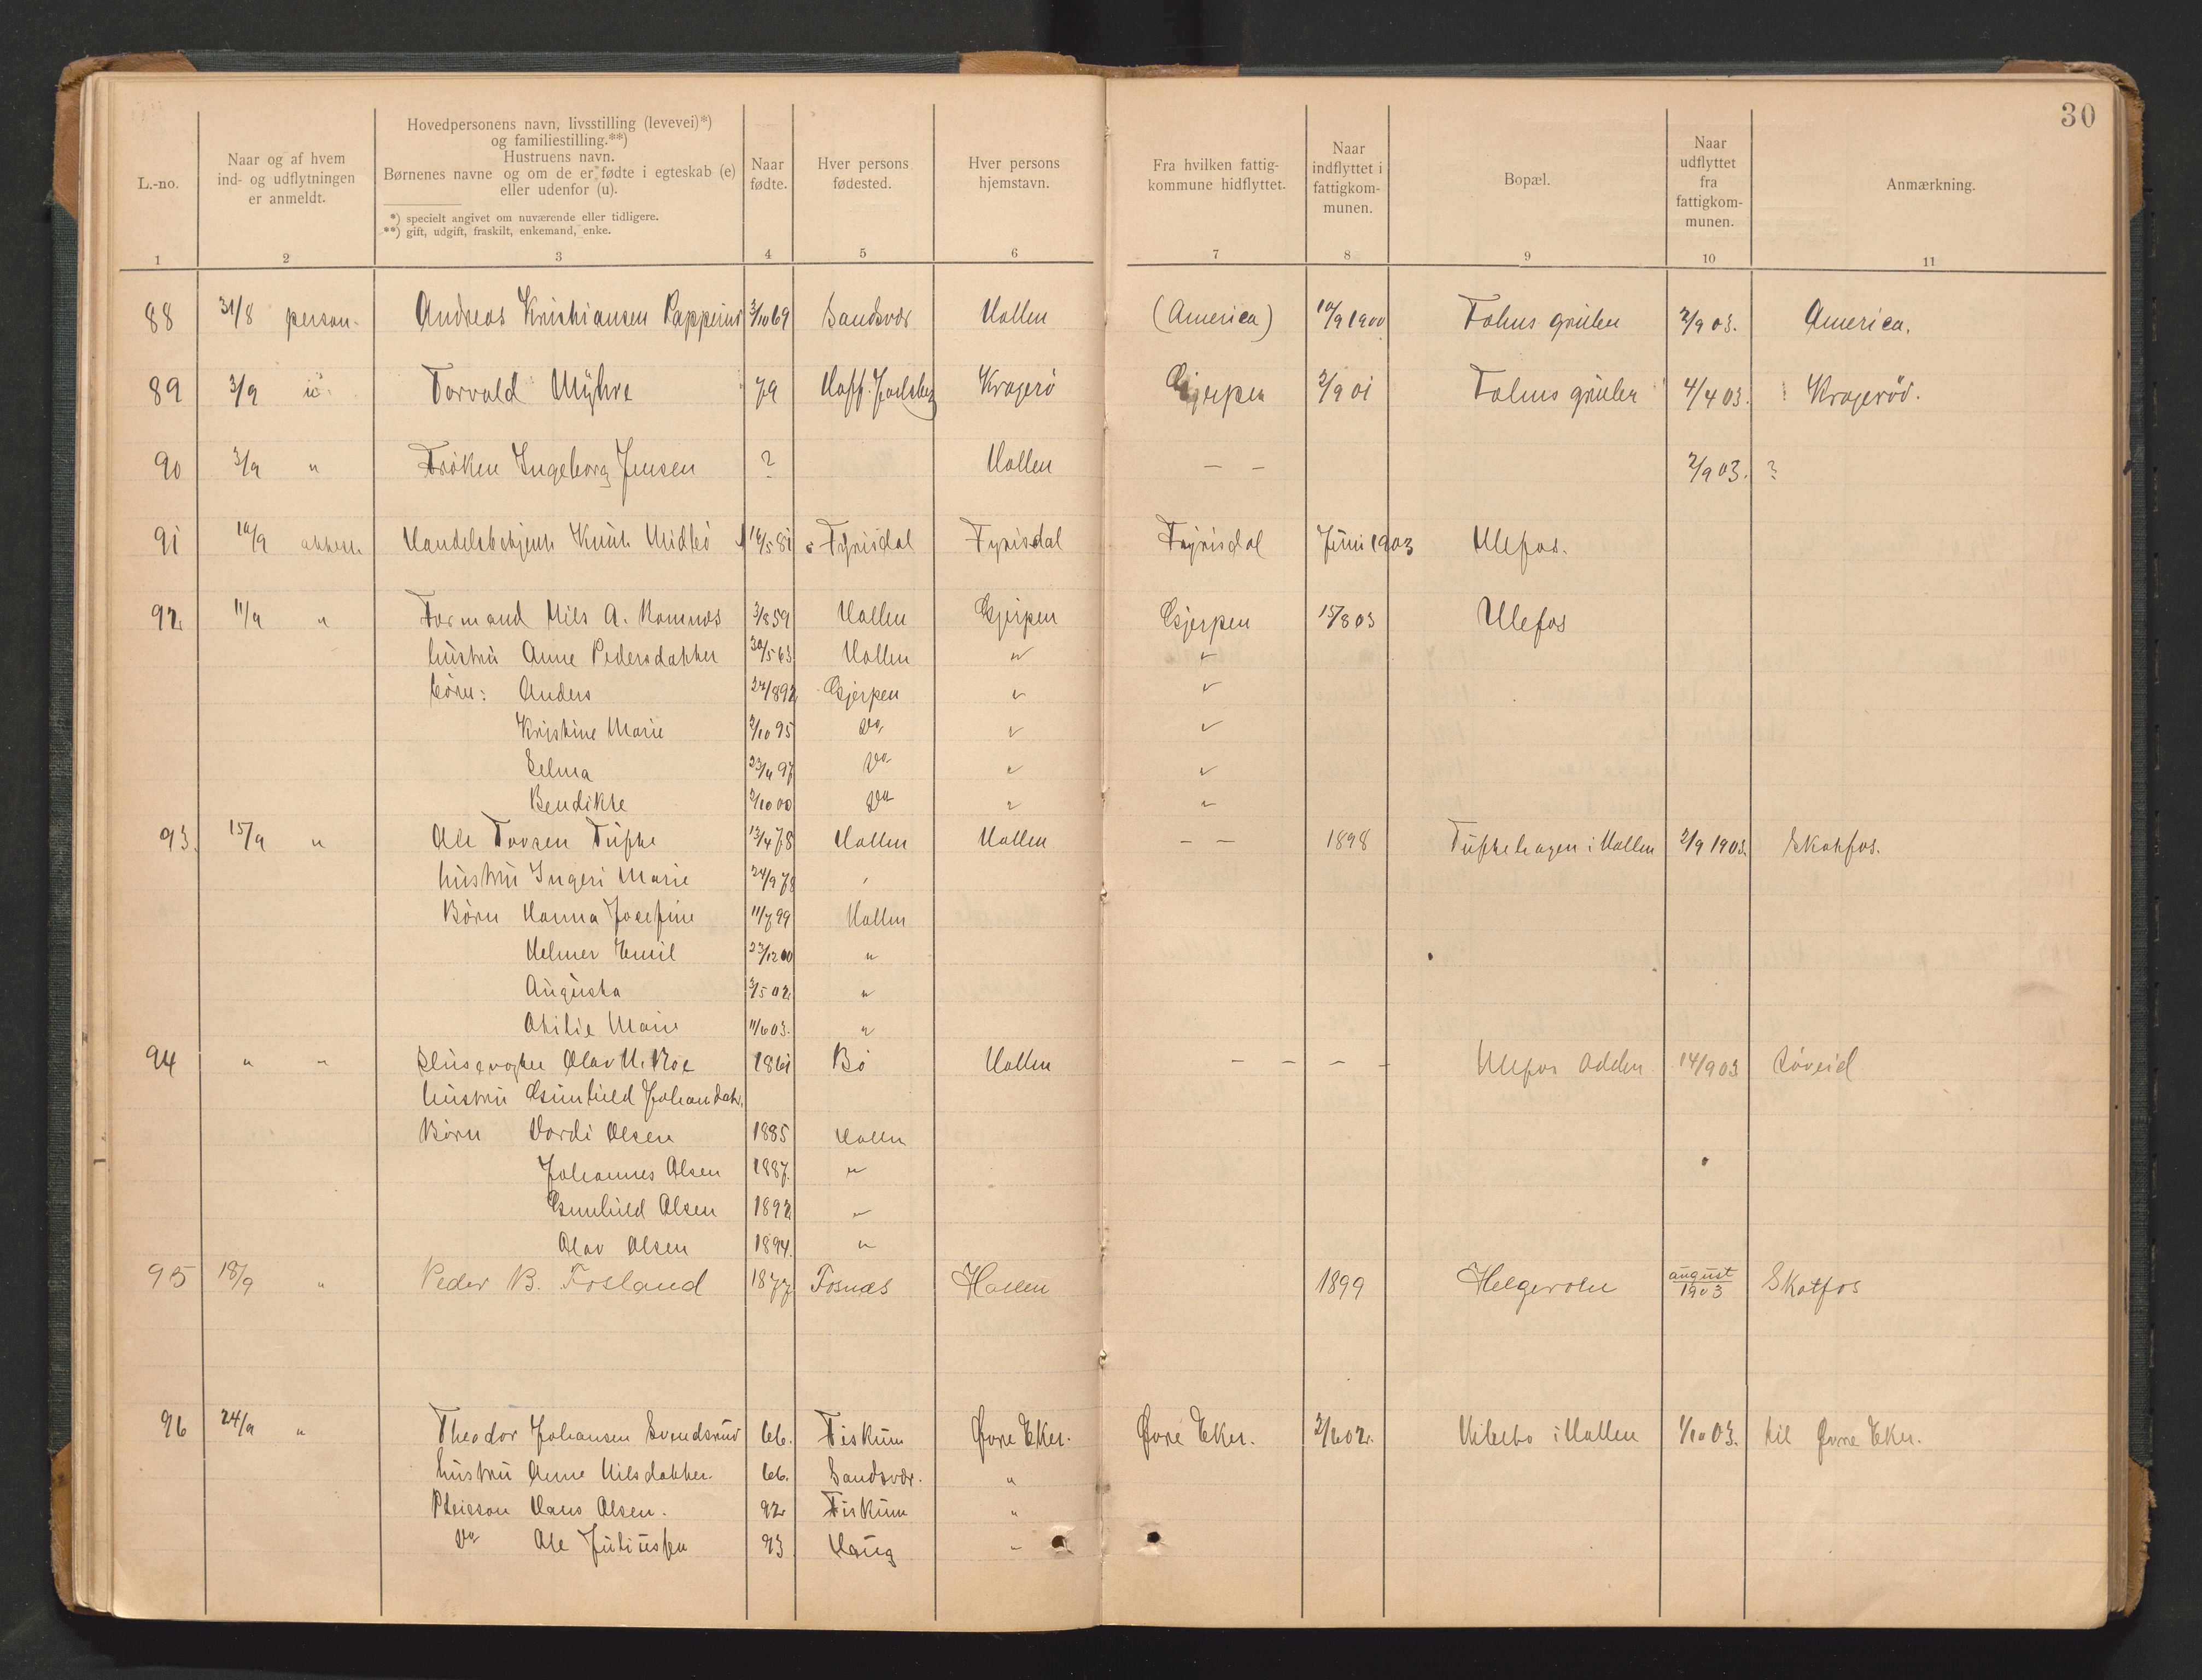 30
L.-no.
Naar og af hvem
ind- og udflytningen
er anmeldt.
Hovedpersonens navn, livsstilling (levevei)*)
og familiestilling.**)
Hustruens navn.
Børnenes navne og om de er fødte i egteskab (e)
eller udenfor (u).
*) specielt angivet om nuværende eller tidligere.
**) gift, udgift, fraskilt, enkemand, enke.
Naar
fødte.
Hver persons
fødested.
Hver persons
hjemstavn.
Fra hvilken fattig-
kommune hidflyttet.
Naar
indflyttet i
fattigkom-
munen.
Bopæl.
Naar
udflyttet
fra
fattigkom-
munen.
Anmærkning.
1 2 3 4 5 6 7 8 9 10 11
88 31/8 person. Andreas Kristiansen 3/10 69 Sandsvær Hollen (America) 10/9 1900 Fehns gruber 2/9 03. America.
89 3/9 " Torvald Myhre 79 Hoff. Jarlsberg Kragerö Gjerpen 2/9 01 Fehns gruber 4/4 03. Kragerød.
90 3/9 " Frøken Ingeborg Jensen ? Hollen — — 2/9 03. ?
91 10/9 attest Handelsbetjent Knut Midbö 14/5 81 Fyrisdal Fyrisdal Fyrisdal Juni 1903 Ulefos.
92 11/9 " Formand Nils A. Romnes 3/8 59 Hollen Gjerpen Gjerpen 15/8 03 Ulefos
hustru Anne Pedersdatter 30/5 63 Hollen " "
børn: Anders 24/8 92 Gjerpen " "
Kristine Marie 2/10 95 Do " "
Selma 23/4 97 Do " "
Bendikte 2/10 00 Do " "
93. 15/9 " Ole Tovsen Tufte 13/4 78 Hollen Hollen — — 1898 Tuftehagen i Hollen 2/9 1903. Skotfos.
hustru Ingeri Marie 24/9 78 "
Børn Hanna Josefine 11/7 99 Hollen
Helmer Emil 23/12 00 "
Augusta 3/5 02 "
Otilie Marie 11/6 03. "
94 " " Slusevogter Olav H. Roe 1861 Bö Hollen — — — — Ulefos Odden 14/9 03 Löveid
hustru Gunhild Johansdatr.
Børn Vordi Olsen 1885 Hollen
Johannes Olsen 1887 "
Gunhild Olsen 1892 "
Olav Olsen 1894. "
95 18/9 " Peder B. Fosland 1877 Fosnæs Hollen 1899 Helgeroen august 1903 Skotfos
96 24/9 " Theodor Johansen Svendsrud 66. Fiskum Øvre Eker. Øvre Eker. 2/6 02. Vibeto i Hollen 1/10 03. til Øvre Eker.
hustru Anne Nilsdatter. 66. Sandsvær. "
Pleieson Hans Olsen. 92 Fiskum "
Do Ole Juliussen 93 Haug "